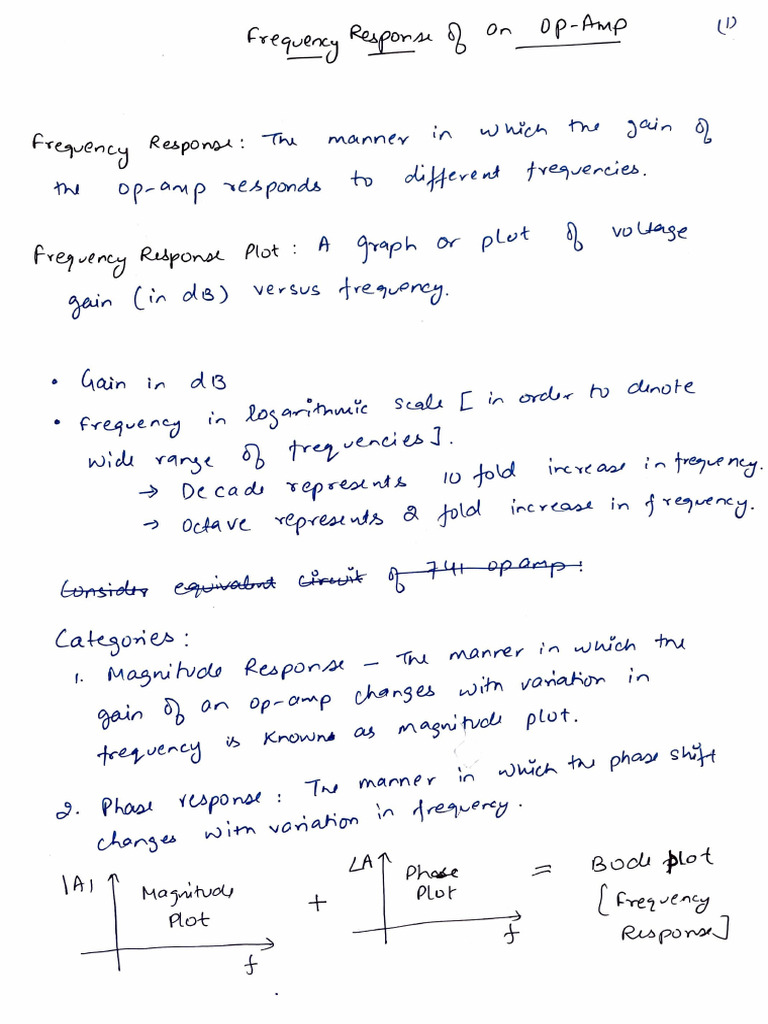 Frequency Response of an Op-Amp (1)
Frequency Response: The manner in which the gain of
the op-amp responds to different frequencies.
Frequency Response Plot: A graph or plot of voltage
gain (in dB) versus frequency.
• Gain in dB
• Frequency in logarithmic scale [in order to denote
wide range of frequencies].
→ Decade represents 10 fold increase in frequency.
→ Octave represents 2 fold increase in frequency.
Consider equivalent circuit of 741 op amp:
Categories:
1. Magnitude Response – The manner in which the
gain of an op-amp changes with variation in
frequency is known as magnitude plot.
2. Phase response: The manner in which the phase shift
changes with variation in frequency.
|A| Magnitude Plot f + ∠A Phase Plot f = Bode plot
[Frequency
Response]